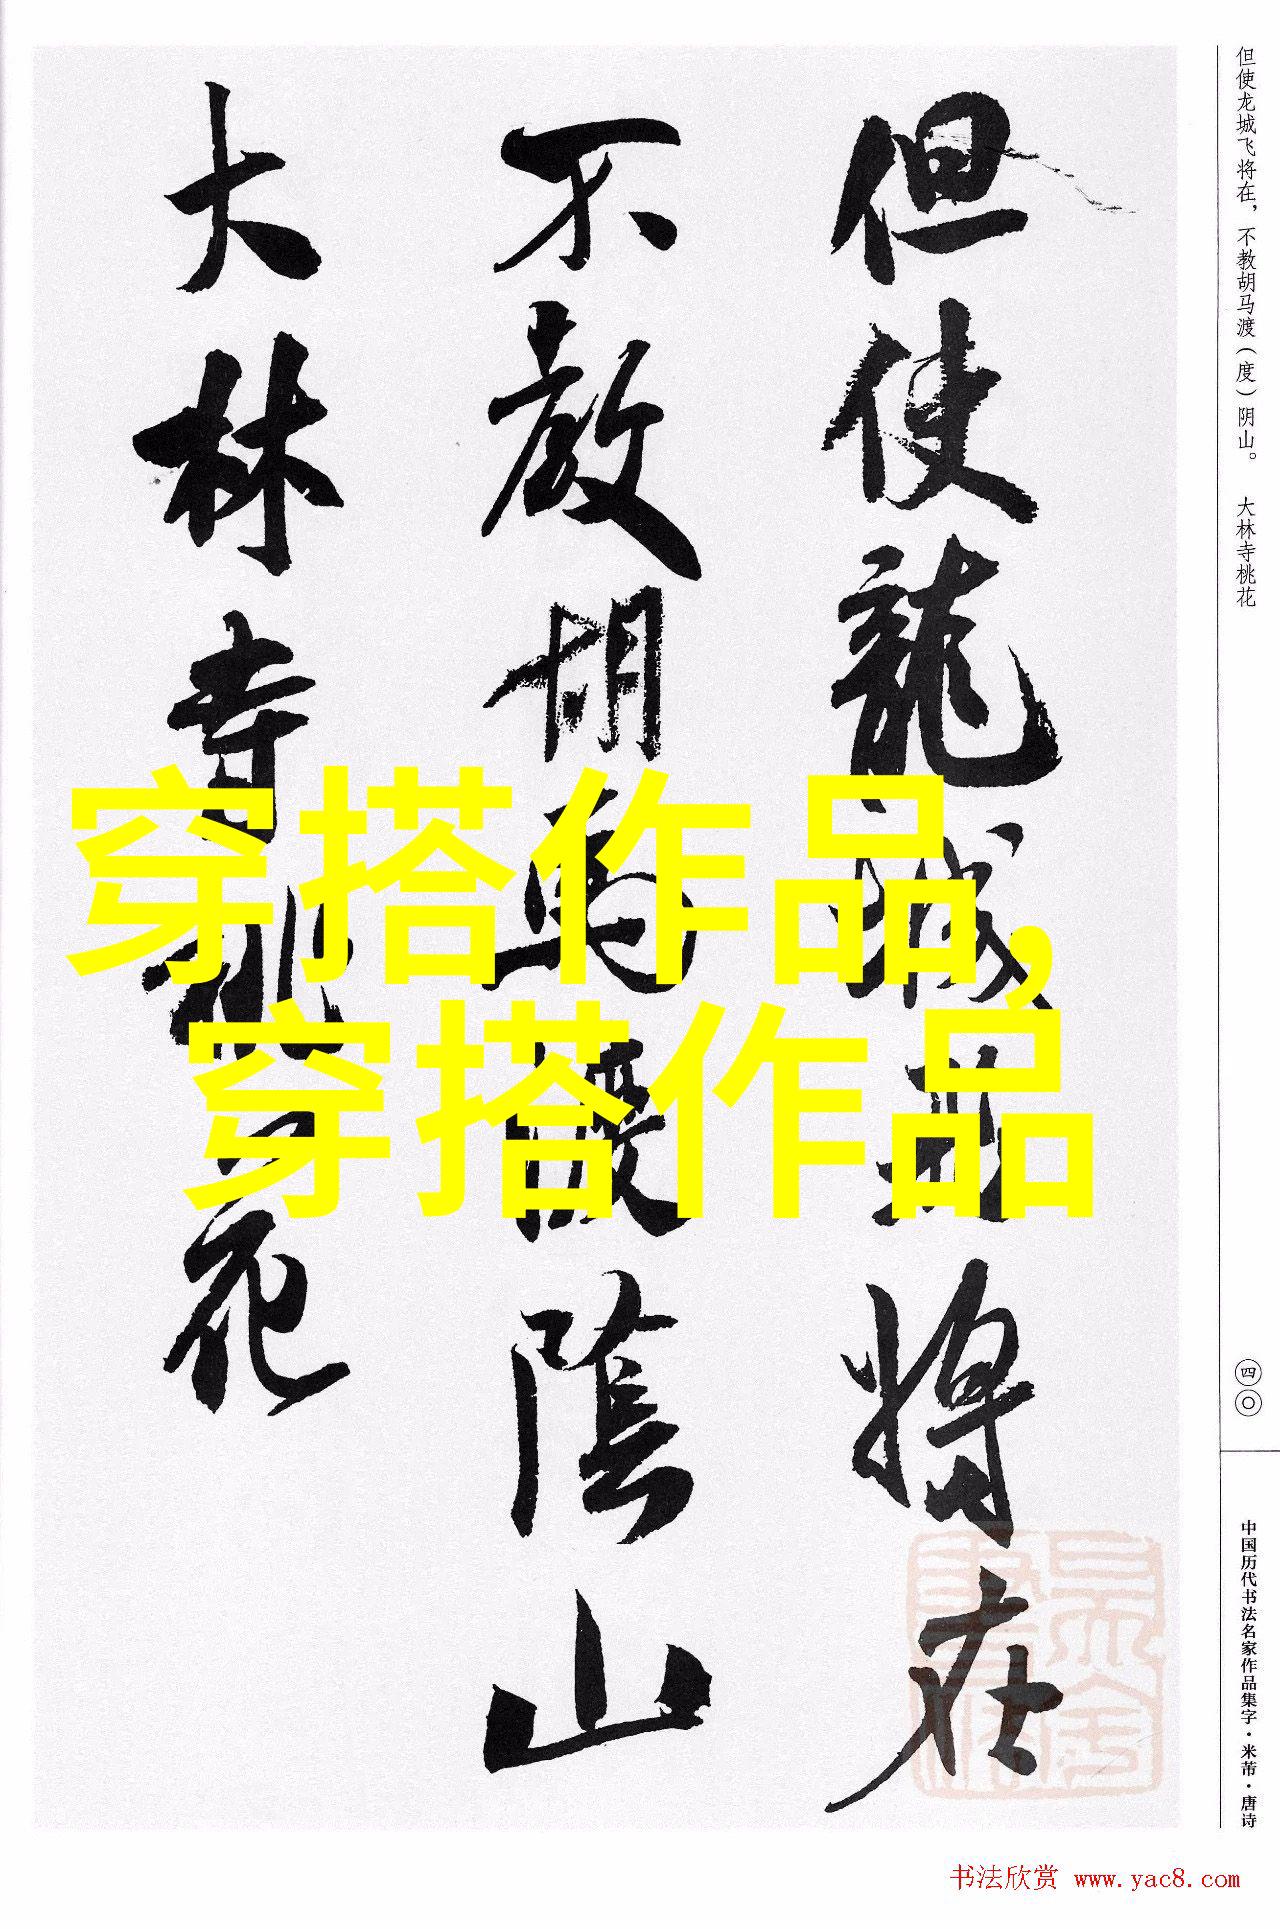 但使龍城飛將在
不教胡馬渡陰山
大林寺桃花
穿搭作品,
穿搭作品
但使龙城飞将在，不教胡马渡（度）阴山。 大林寺桃花
四〇
中国历代书法名家作品集字·米芾·唐诗
书法欣赏 www.yac8.com